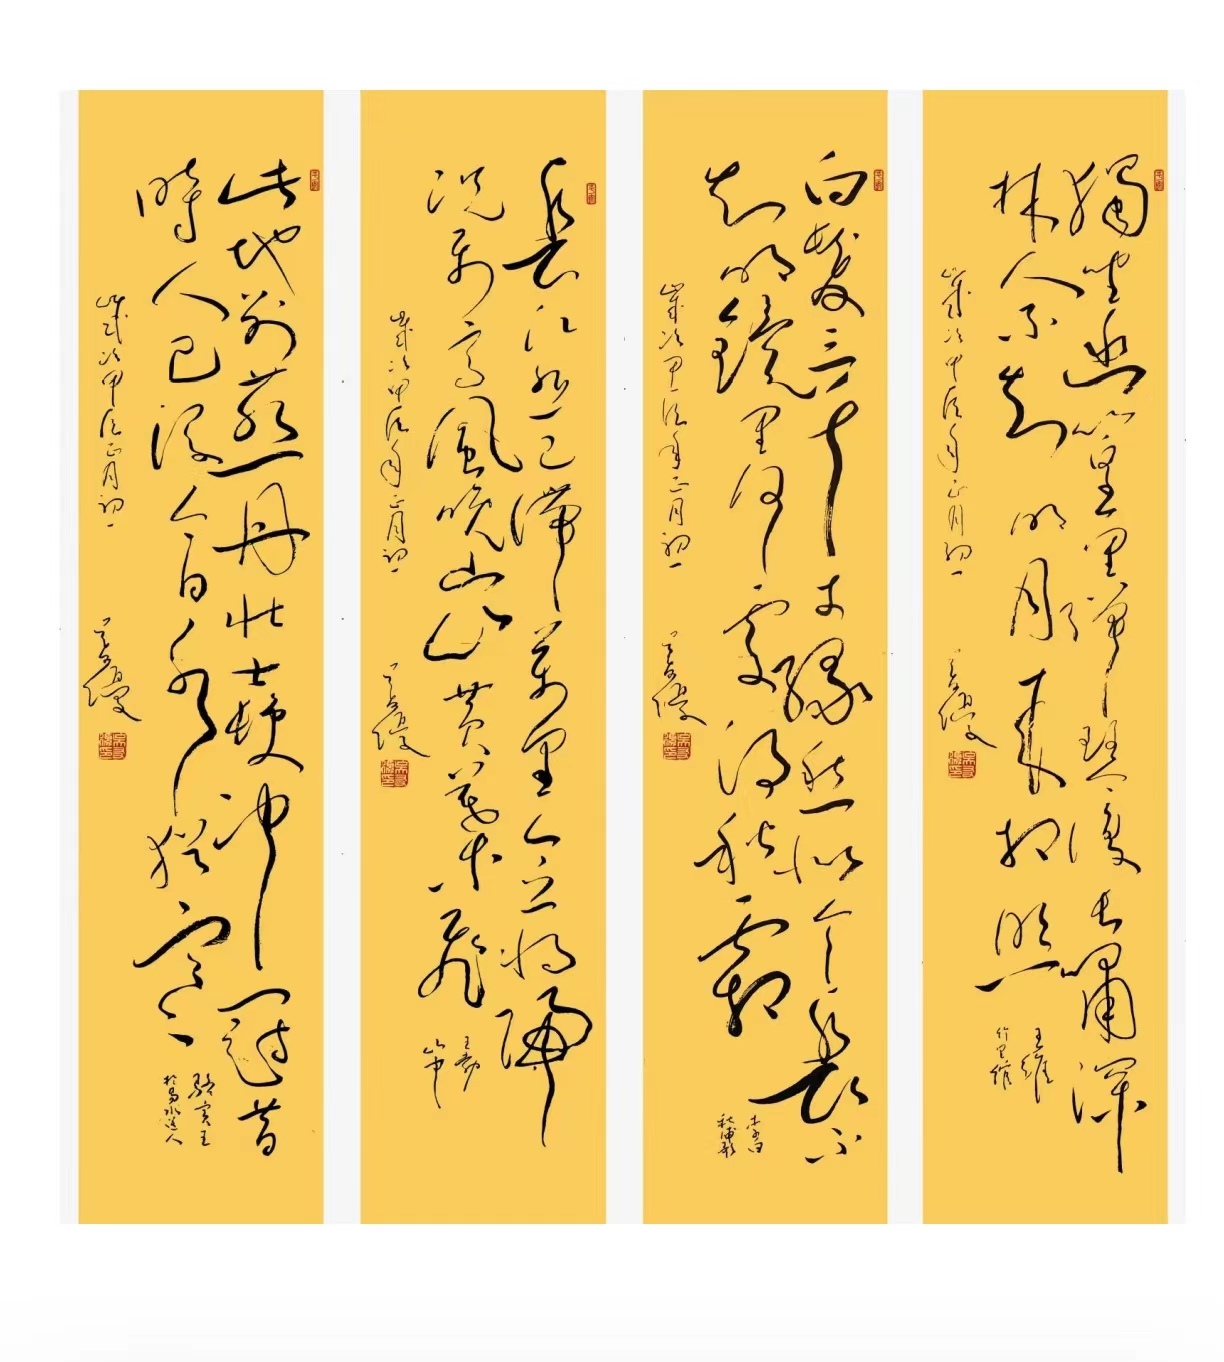 獨坐幽篁里彈琴復長嘯深
林人不知明月來相照
王維
竹里館
歲次甲辰年正月初一
白髮三千丈緣愁似个長不
知明鏡里何處得秋霜
李白
秋浦歌
歲次甲辰年正月初一
長江悲已滯萬里念將歸
況屬高風晚山山黃葉飛
王勃
山中
歲次甲辰年正月初一
此地別燕丹壯士髮沖冠昔
時人已沒今日水猶寒
駱賓王
於易水送人
歲次甲辰正月初一